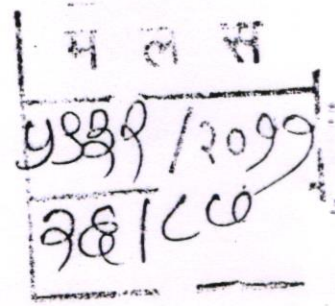 म ल स
५९३९ /२०११
२६/८७